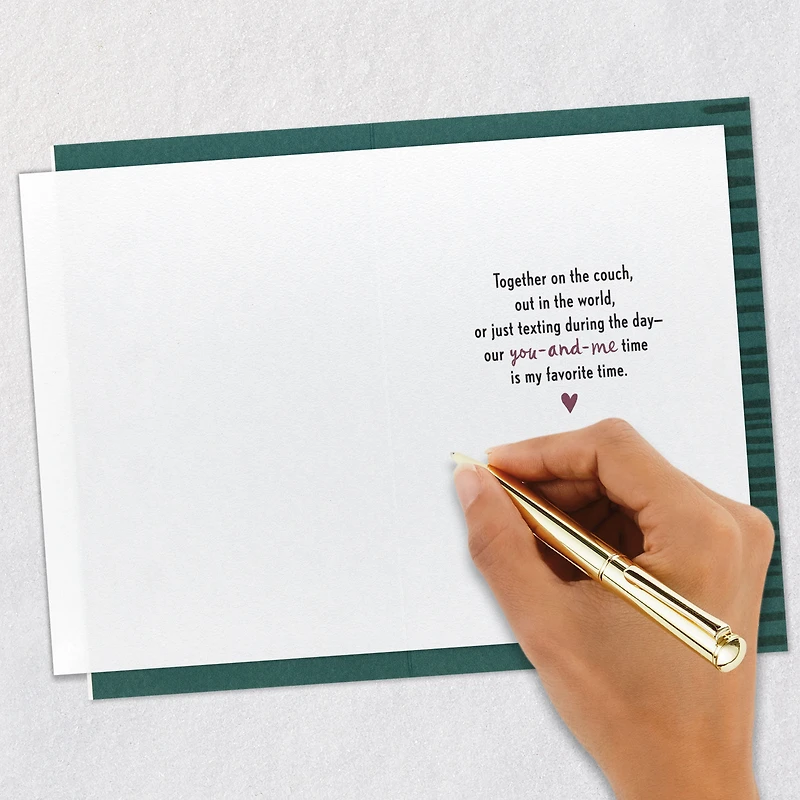 Together on the couch,
out in the world,
or just texting during the day—
our you-and-me time
is my favorite time.